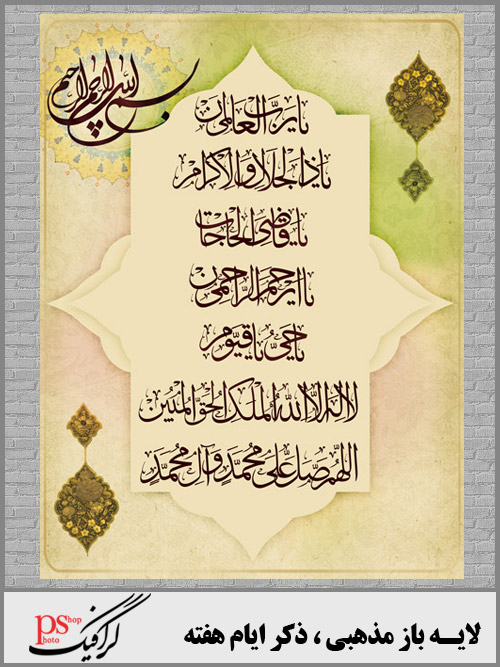 بسم الله الرحمن الرحیم
یا رب العالمین
یا ذا الجلال والاکرام
یا قاضی الحاجات
یا ارحم الراحمین
یا حیّ یا قیّوم
لا اله الا الله الملک الحق المبین
اللهم صل علی محمد و آل محمد
لایــه باز مذهبی ، ذکر ایام هفته
گرافیک
psshop
Photo